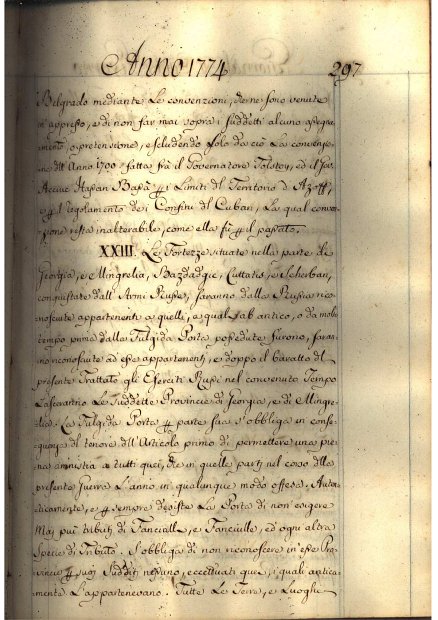 Anno 1774 297
Belgrado mediante Le convenzioni, che ne sono venute
in appresso, e di non far mai sopra i suddetti alcuno assegna-
mento, o pretensione, escludendo solo da ciò La convenzi-
one dell'Anno 1700 fatta frà il Governatore Tolstoy, ed il
Hassan Bassà i Limiti del Territorio d'Azoff,
e Regolamento dei Confini del Cuban, La qual conven-
zione resta inalterabile, come ella fù il passato.
XXIII. Le Fortezze situate nella parte di
Georgia, e Mingrelia, Bazdadgic, Cuttatis, e Scherban,
conquistate dall'Armi Russe, saranno dalla Russia rico-
nosciute appartenenti a quelli, a quali ab antico, o da molto
tempo prima dalla Fulgida Porta possedute furono, saran-
no riconosciute ad essa appartenenti, e doppo il baratto del
presente Trattato gli Eserciti Russi nel convenuto Tempo
Lascierantno Le suddette Provincie di Georgia, e di Mingre-
lia. La Fulgida Porta parte sua s'obbliga in conse-
guenza del tenore dell'Articolo primo di permettere una pie-
na amnistia a tutti quei, che in quelle parti nel corso della
presente Guerra L'anno in qualunque modo offesa. Auten-
ticamente, e sempre desiste La Porta di non esigere
Mai più tributi di Fanciulli, e Fanciulle, ed ogni altra
Specie di Tributo. S'obbliga di non riconoscere in esse Pro-
vincie suoi Sudditi nessuno, eccettuati quei, i quali antica-
mente L'appartenevano. Tutte Le Terre, e Luoghi